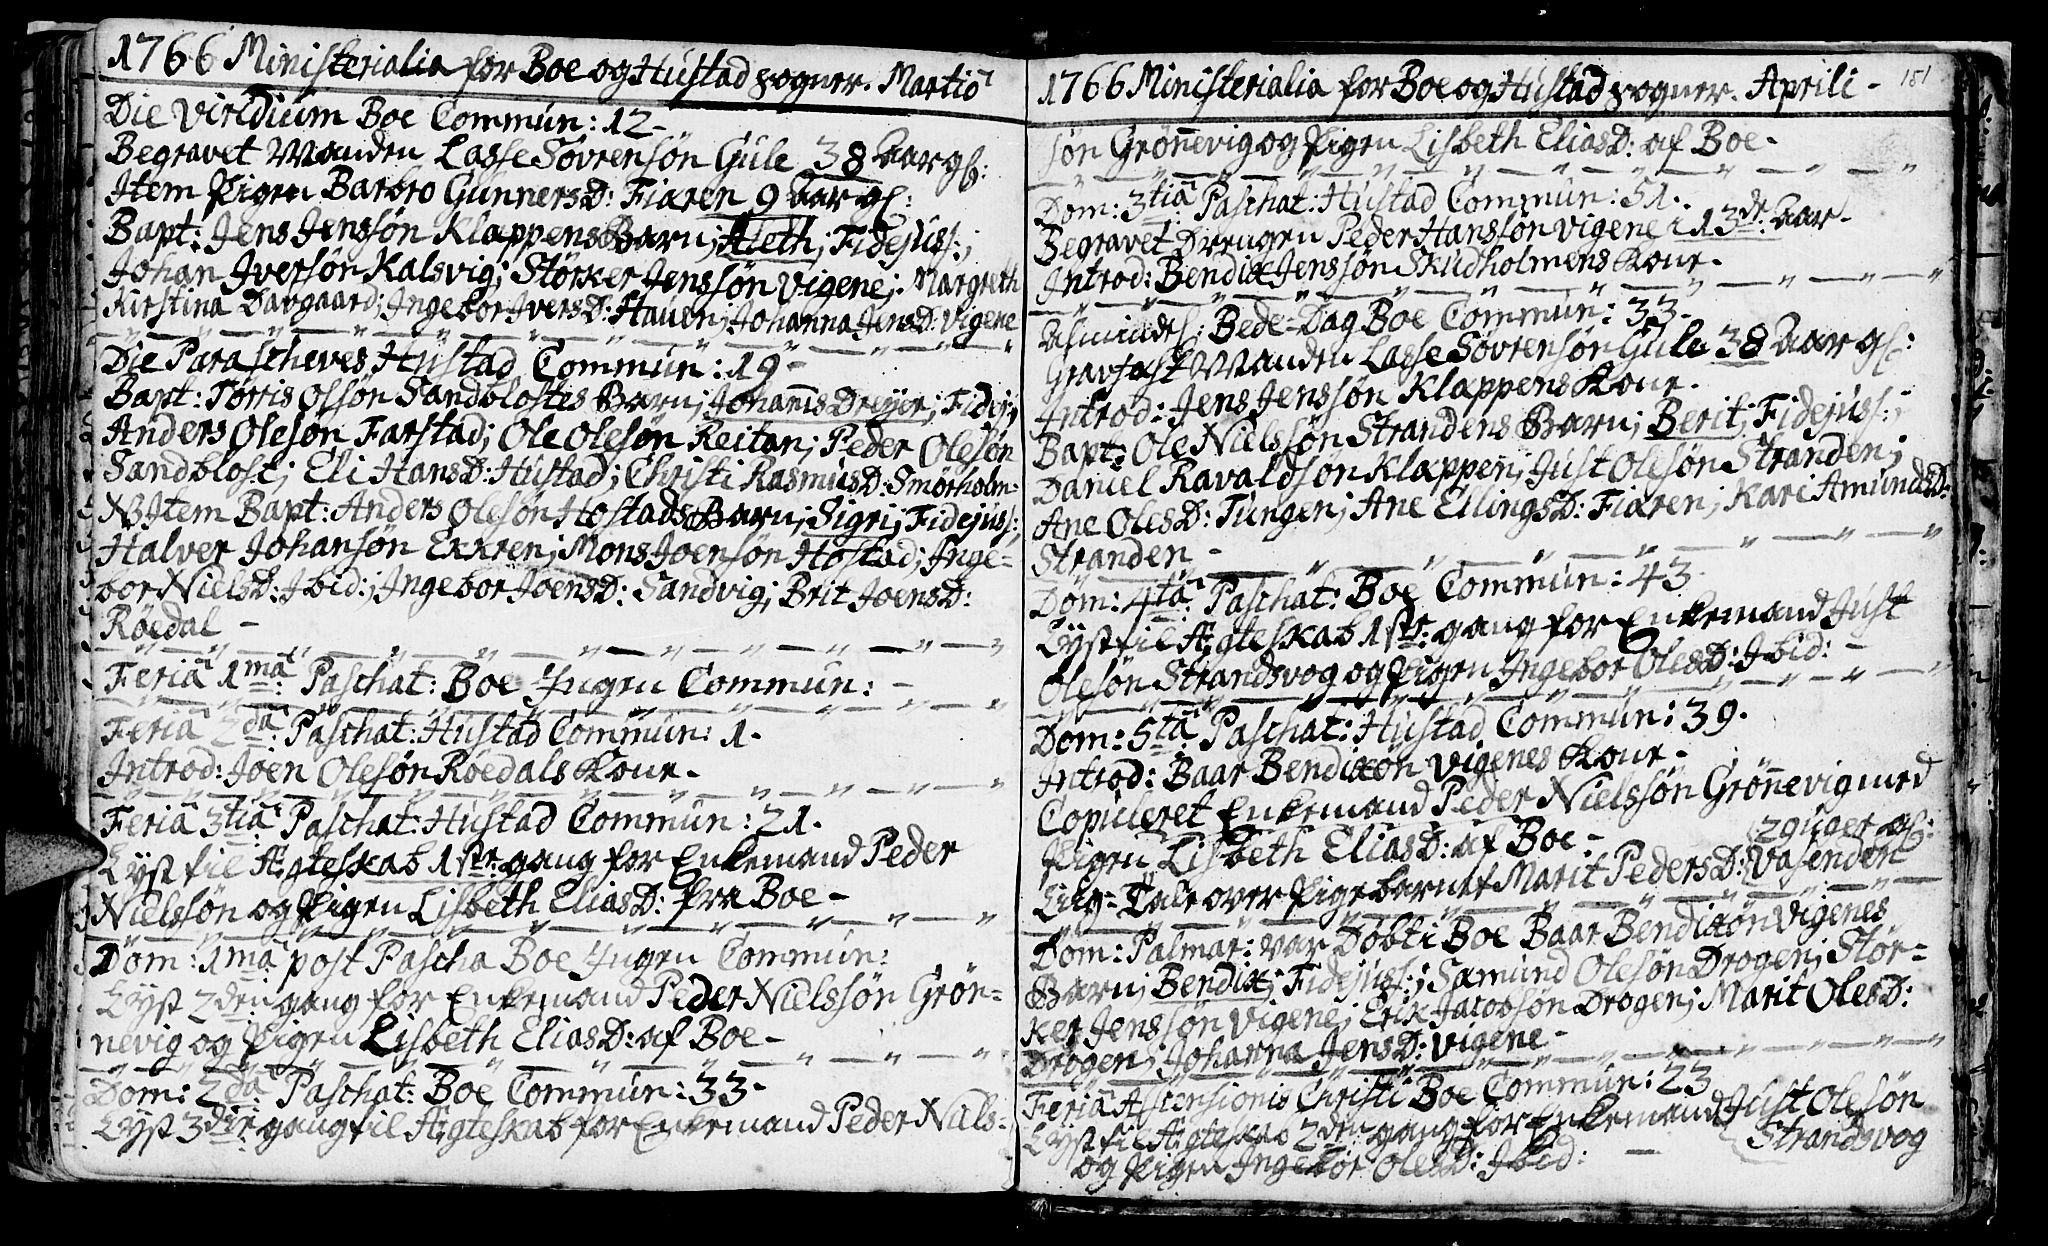 1766 Ministerialia for Boe og Hustad sogner. Martio
Die Viridium Boe Commun: 12 -
Begravet Manden Lasse Sovrensøn Gule 38 Aar gl:
Item Pigen Barbro GunnersD: Fiaren 9 Aar gl:
Bapt: Jens Jensøn Klappens Barn; Aleth; Fidejuss:;
Johan Iversøn Kalsvig; Størker Jenssøn Vigene; Margreth
Kirstina Davgaard; Ingebor IversD: Hauen; Johanna JensD: Vigene
Die Parascheves Hustad Commun: 19 -
Bapt: Torris Olsøn Sandblostes Barn; Johannis Dreyer; Fidej:;
Anders Olesøn Farstad; Ole Olesøn Reitan; Peder Olesøn
Sandblost; Eli HansD: Hustad; Christi RasmusD: Smørholm:
NB Item Bapt: Anders Olesøn Hostads Barn; Sigri; Fidejuss:;
Halver Johansøn Ekkren; Mons Joensøn Hostad; Inge=
bor NielsD: Ibid:; Ingebor JoensD: Sandvig; Brit JoensD:
Röedal -
Feria 1ma: Paschat: Boe Ingen Commun: -
Feria 2da: Paschat: Hustad Commun: 1.
Introd: Joen Olesøn Roedals Kone.
Feria 3tia: Paschat: Hustad Commun: 21.
Lyst til Ægteskab 1ste: gang for Enkemand Peder
Nielssøn og Pigen Lisbeth EliasD: fra Boe -
Dom: 1ma post Pascha Boe Ingen Commun:
Lyst 2den: gang for Enkemand Peder Nielssøn Grön=
nevig og Pigen Lisbeth EliasD: af Boe -
Dom: 2da: Paschat: Boe Commun: 33.
Lyst 3die: gang til Ægteskab for Enkemand Peder Niels=
1766 Ministerialia for Boe og Hustad sogner. Aprili - 181
søn Grönnevig og Pigen Lisbeth EliasD: af Boe.
Dom: 3tia: Paschat: Hustad Commun: 51.
Begravet Drengen Peder Hanssøn Vigene i 13de: Aar.
Introd: Bendix Jenssøn Skudholmens Kone.
Almindel: Bede-Dag Boe Commun: 33.
Gravfæst Manden Lasse Sovrensøn Gule 38 Aar gl:
Introd: Jens Jenssøn Klappens Kone.
Bapt: Ole Nielssøn Strandens Barn; Berit; Fidejuss:;
Daniel Ravaldsøn Klappen; Just Olesøn Stranden;
Ane OlesD: Tungen; Ane EllingsD: Fiaren; Kari AmundsD:
Stranden -
Dom: 4ta: Paschat: Boe Commun: 43.
Lyst til Ægteskab 1ste: gang for Enkemand Just
Olesøn Strandsvog og Pigen Ingebor OlesD: Ibid: -
Dom: 5ta: Paschat: Hustad Commun: 39.
Introd: Baar Bendixøn Vigenes Kone.
Copuleret Enkemand Peder Nielssøn Grönnevig med
Pigen Lisbeth EliasD: af Boe -
2 Uger gl:
Liig-Tale over Pigebarnet Marit PedersD: Vasenden
Dom: Palmar: var Döbt i Boe Baar Bendixøn Vigenes
Barn; Bendix; Fidejuss:; Samund Olesøn Drogen; Stör=
ker Jenssøn Vigene; Erik Jacobsøn Drogen; Marit OlesD:
Drogen; Johanna JensD: Vigene -
Feria Ascensionis Christi Boe Commun: 23
Lyst til Ægteskab 2den: gang for Enkemand Just Olesøn
Strandsvog
og Pigen Ingebor OlesD: Ibid: -